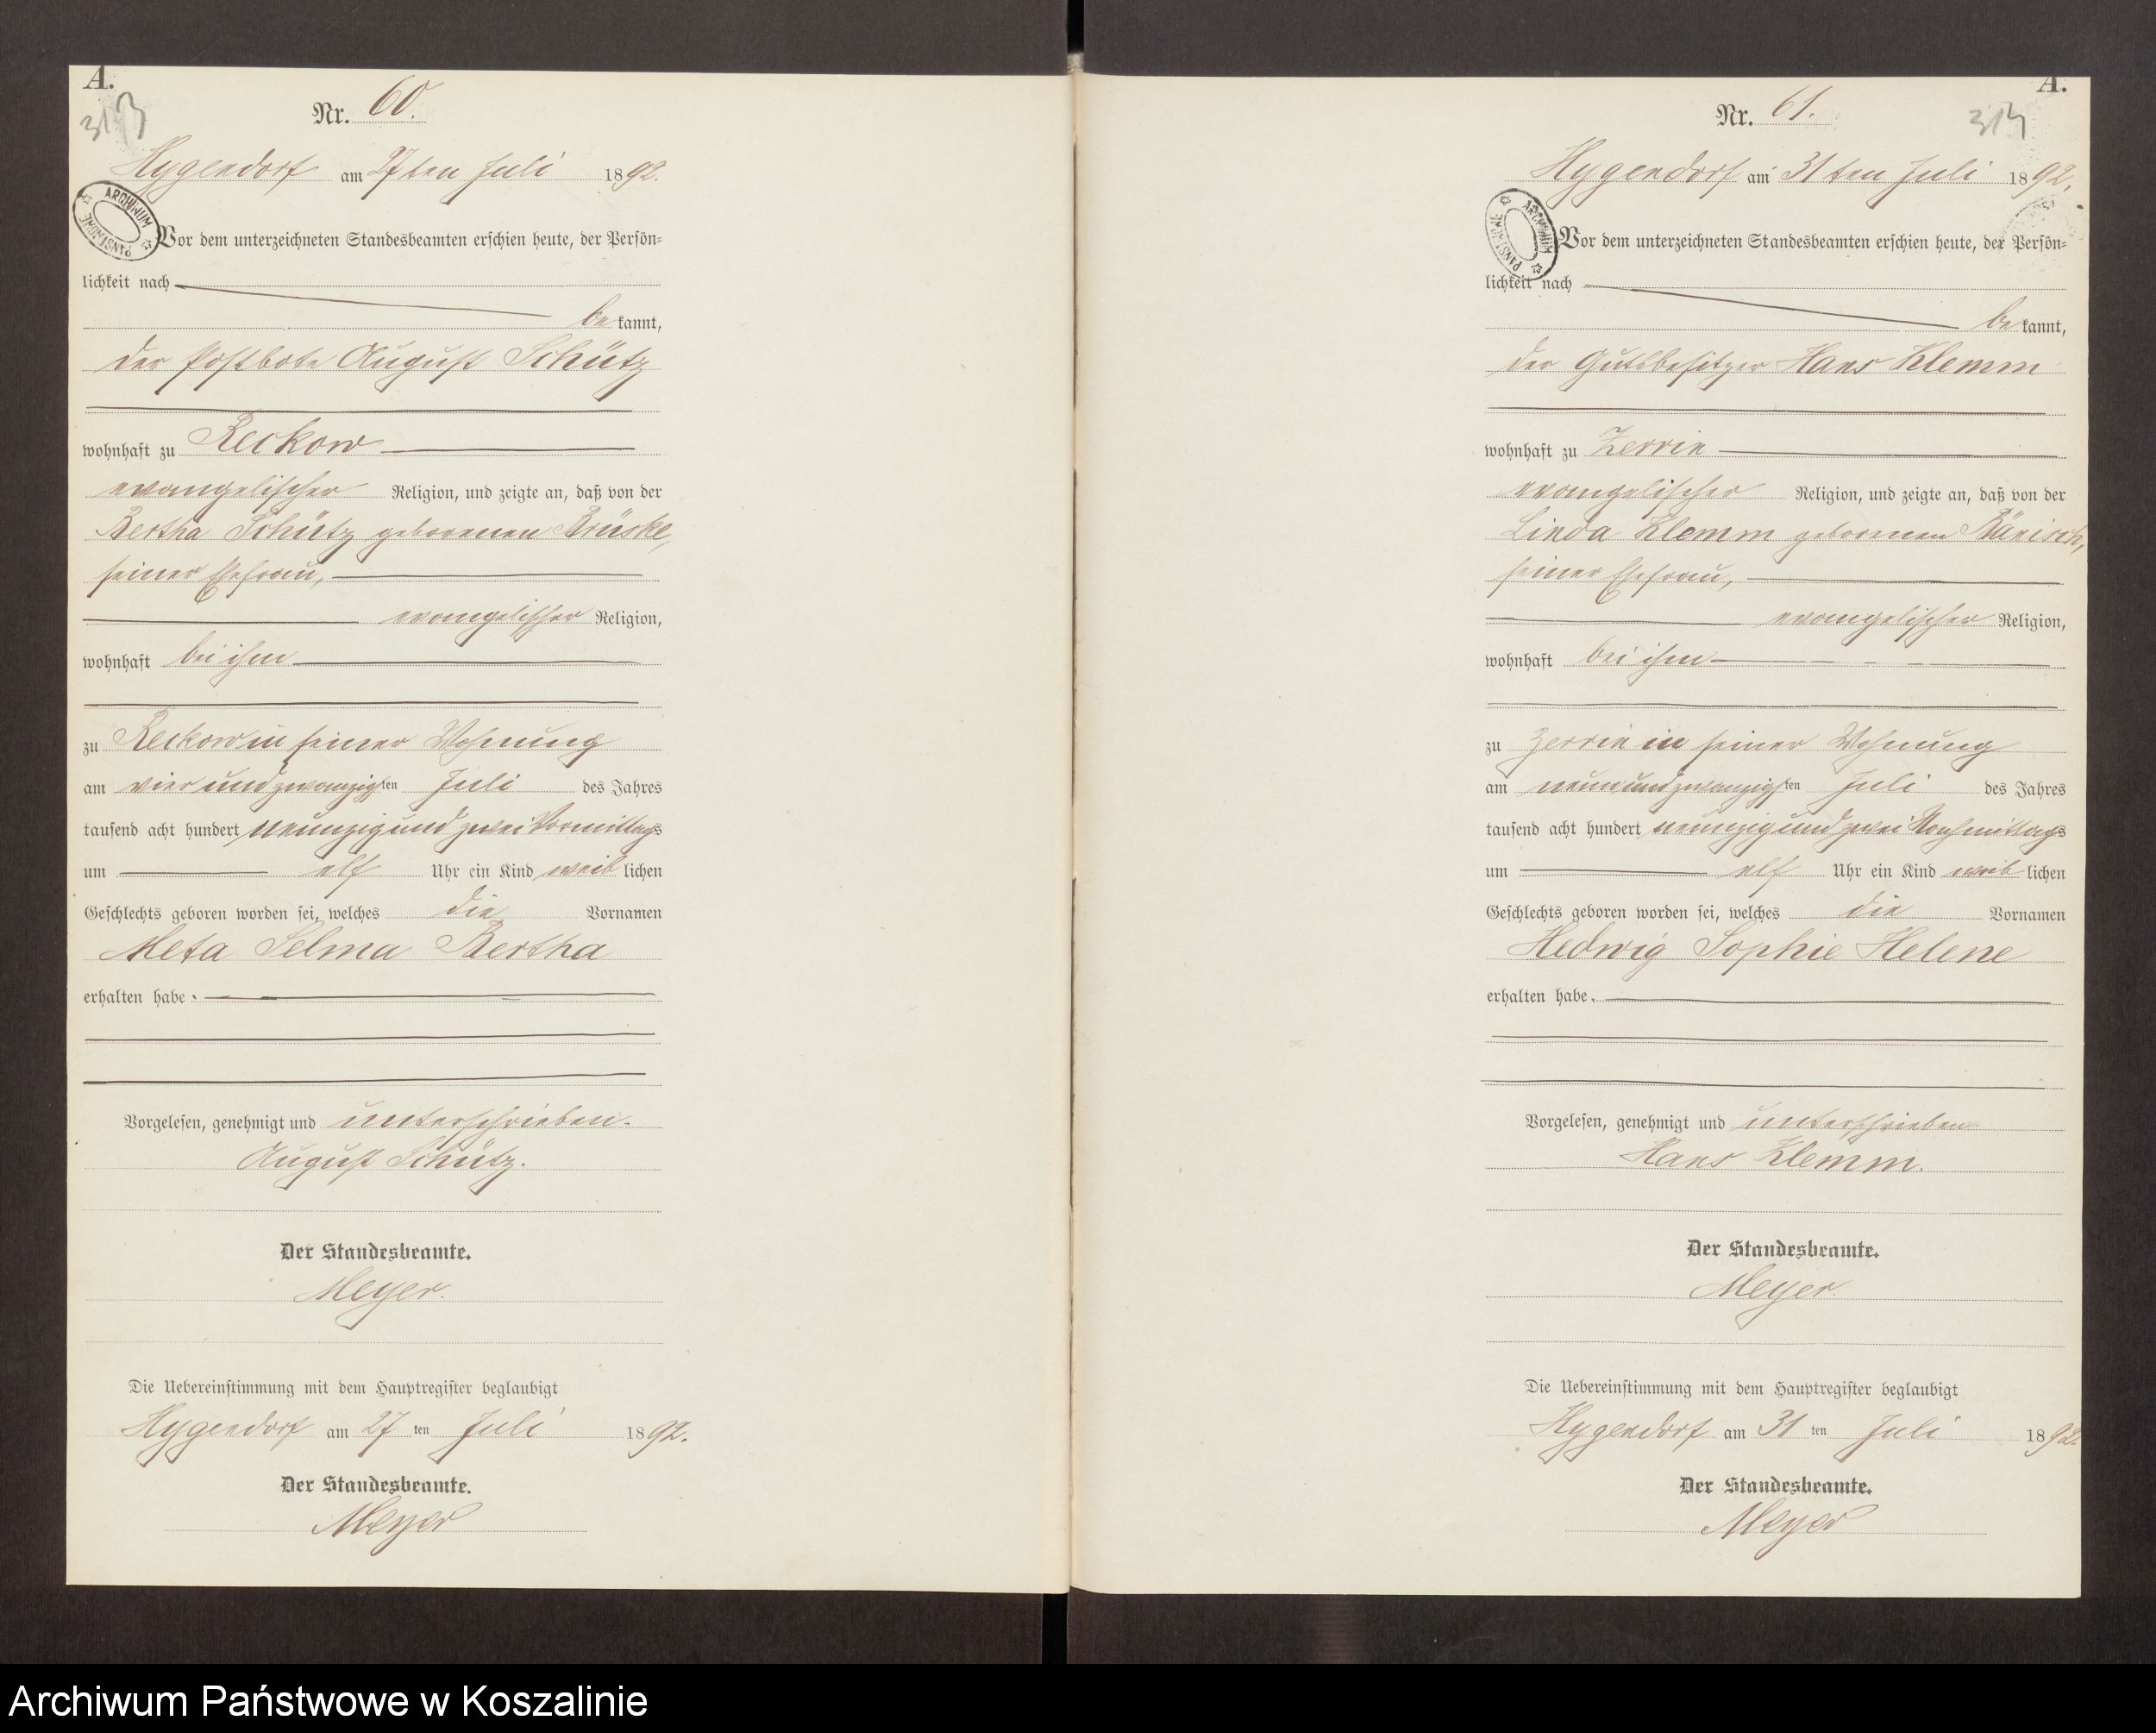 A.
313
Nr. 60.
Hygendorf am 27ten Juli 1892.
ARCHIWUM PAŃSTWOWE
Vor dem unterzeichneten Standesbeamten erschien heute, der Persön=
lichkeit nach
be kannt,
der Postbote August Schütz
wohnhaft zu Reckow
evangelischer Religion, und zeigte an, daß von der
Bertha Schütz geborenen Brüske,
seiner Ehefrau,
evangelischer Religion,
wohnhaft bei ihm
zu Reckow in seiner Wohnung
am vier und zwanzigsten Juli des Jahres
tausend acht hundert neunzig und zwei Vormittags
um elf Uhr ein Kind weib lichen
Geschlechts geboren worden sei, welches die Vornamen
Meta Selma Bertha
erhalten habe.
Vorgelesen, genehmigt und unterschrieben.
August Schütz.
Der Standesbeamte.
Meyer.
Die Uebereinstimmung mit dem Hauptregister beglaubigt
Hygendorf am 27 ten Juli 1892.
Der Standesbeamte.
Meyer
A.
Nr. 61.
Hygendorf am 31ten Juli 1892.
ARCHIWUM PAŃSTWOWE
Vor dem unterzeichneten Standesbeamten erschien heute, der Persön=
lichkeit nach
be kannt,
der Gutsbesitzer Hans Klemm
wohnhaft zu Zerrin
evangelischer Religion, und zeigte an, daß von der
Linda Klemm geborenen Bänisch,
seiner Ehefrau,
evangelischer Religion,
wohnhaft bei ihm
zu Zerrin in seiner Wohnung
am neun und zwanzigsten Juli des Jahres
tausend acht hundert neunzig und zwei Nachmittags
um elf Uhr ein Kind weib lichen
Geschlechts geboren worden sei, welches die Vornamen
Hedwig Sophie Helene
erhalten habe.
Vorgelesen, genehmigt und unterschrieben
Hans Klemm.
Der Standesbeamte.
Meyer.
Die Uebereinstimmung mit dem Hauptregister beglaubigt
Hygendorf am 31 ten Juli 1892.
Der Standesbeamte.
Meyer
Archiwum Państwowe w Koszalinie